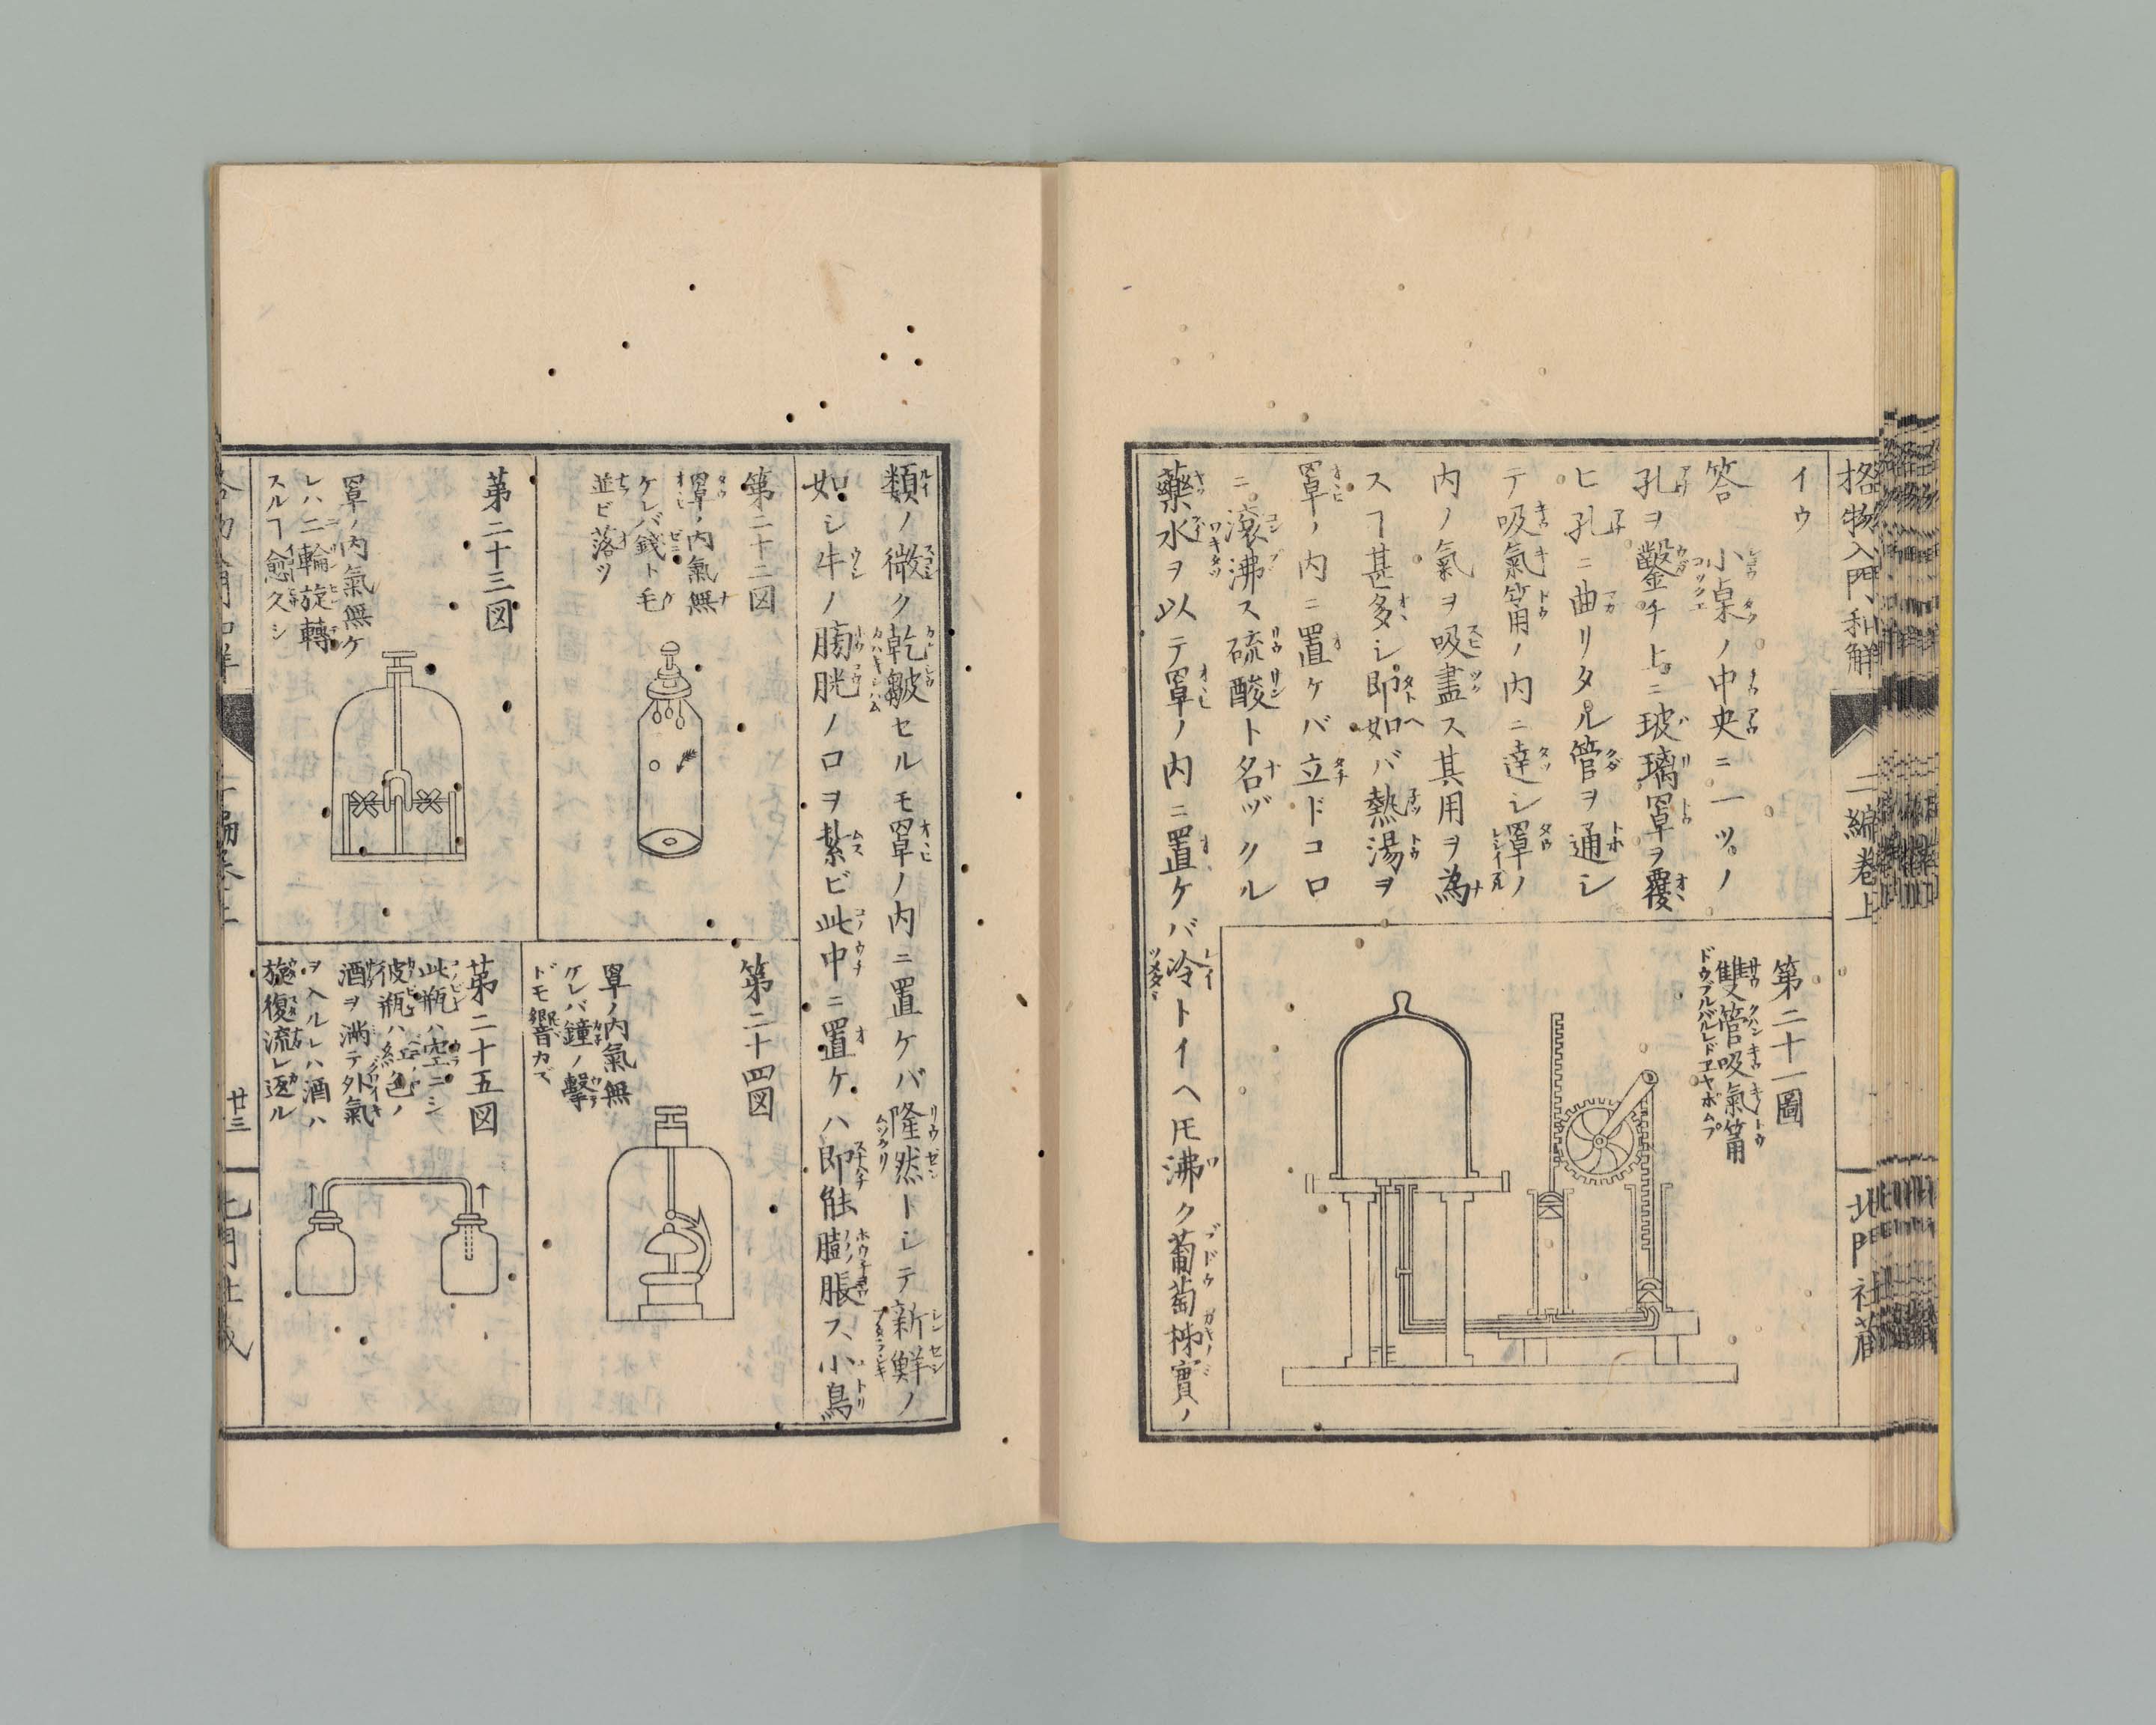 格物入門和解 二編巻上 北門社蔵
イウ
答 小桌ノ中央ニ一ツノ
孔ヲ鑿チ上ニ玻璃罩ヲ覆
ヒ孔ニ曲リタル管ヲ通シ
テ吸氣筩ノ内ニ達シ罩ノ
内ノ氣ヲ吸盡ス其用ヲ為
スヿ甚多シ即如バ熱湯ヲ
罩ノ内ニ置ケバ立ドコロ
ニ滾沸ス硫酸ト名ヅクル
藥水ヲ以テ罩ノ内ニ置ケバ冷トイヘ𪜈沸ク葡萄柹實ノ
第二十一圖
雙管吸氣筩
ドウブルバルレドエヤポムプ
類ノ微ク乾皺セルモ罩ノ内ニ置ケバ隆然トシテ新鮮ノ
如シ牛ノ膀胱ノ口ヲ紮ビ此中ニ置ケハ即能膨脹ス、小鳥
第二十二図
罩ノ内氣無
ケレバ錢ト毛
並ビ落ツ
第二十三図
罩ノ内氣無ケ
レハ二輪旋轉
スルヿ愈久シ
第二十四図
罩ノ内氣無
ケレバ鐘ノ擊
ドモ響カズ
第二十五図
此瓶ハ空ニシ
彼瓶ハ紅色ノ
酒ヲ満テ外氣
ヲ入ルレハ酒ハ
旋復流レ返ル
廿三